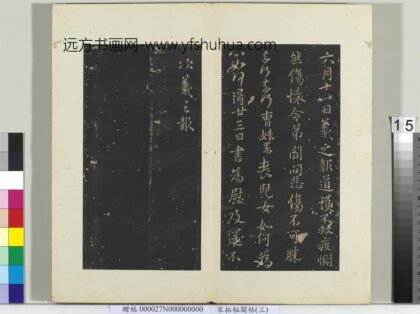 远方书画网—www.yfshuhua.com
六月十六日羲之報道護不救疾惻
然傷懷念弟聞問悲傷不可勝
奈何奈何曹妹累喪兒女如何為
心如何得廿三日書為慰及還不
次羲之報
15
贈帖 000027N000000000 宋拓秘閣帖(三)